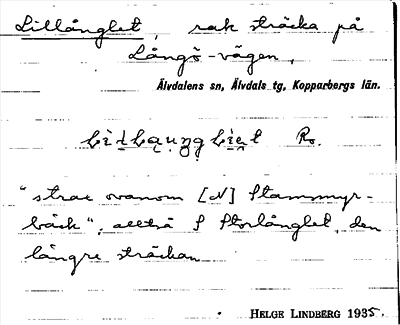 Lillånglet, rak sträcka på
Långö-vägen,
Älvdalens sn, Älvdals tg, Kopparbergs län.
Ro.
"strax ovanom [N] Stammyr-
bäck", alltså S Storlånglet, den
längre sträckan
HELGE LINDBERG 1935.